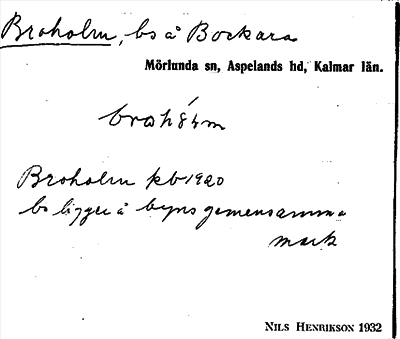 Broholm, bs å Bockara
Mörlunda sn, Aspelands hd, Kalmar län.
Broholm kb 1920
bs ligger å byns gemensamma
mark
NILS HENRIKSON 1932